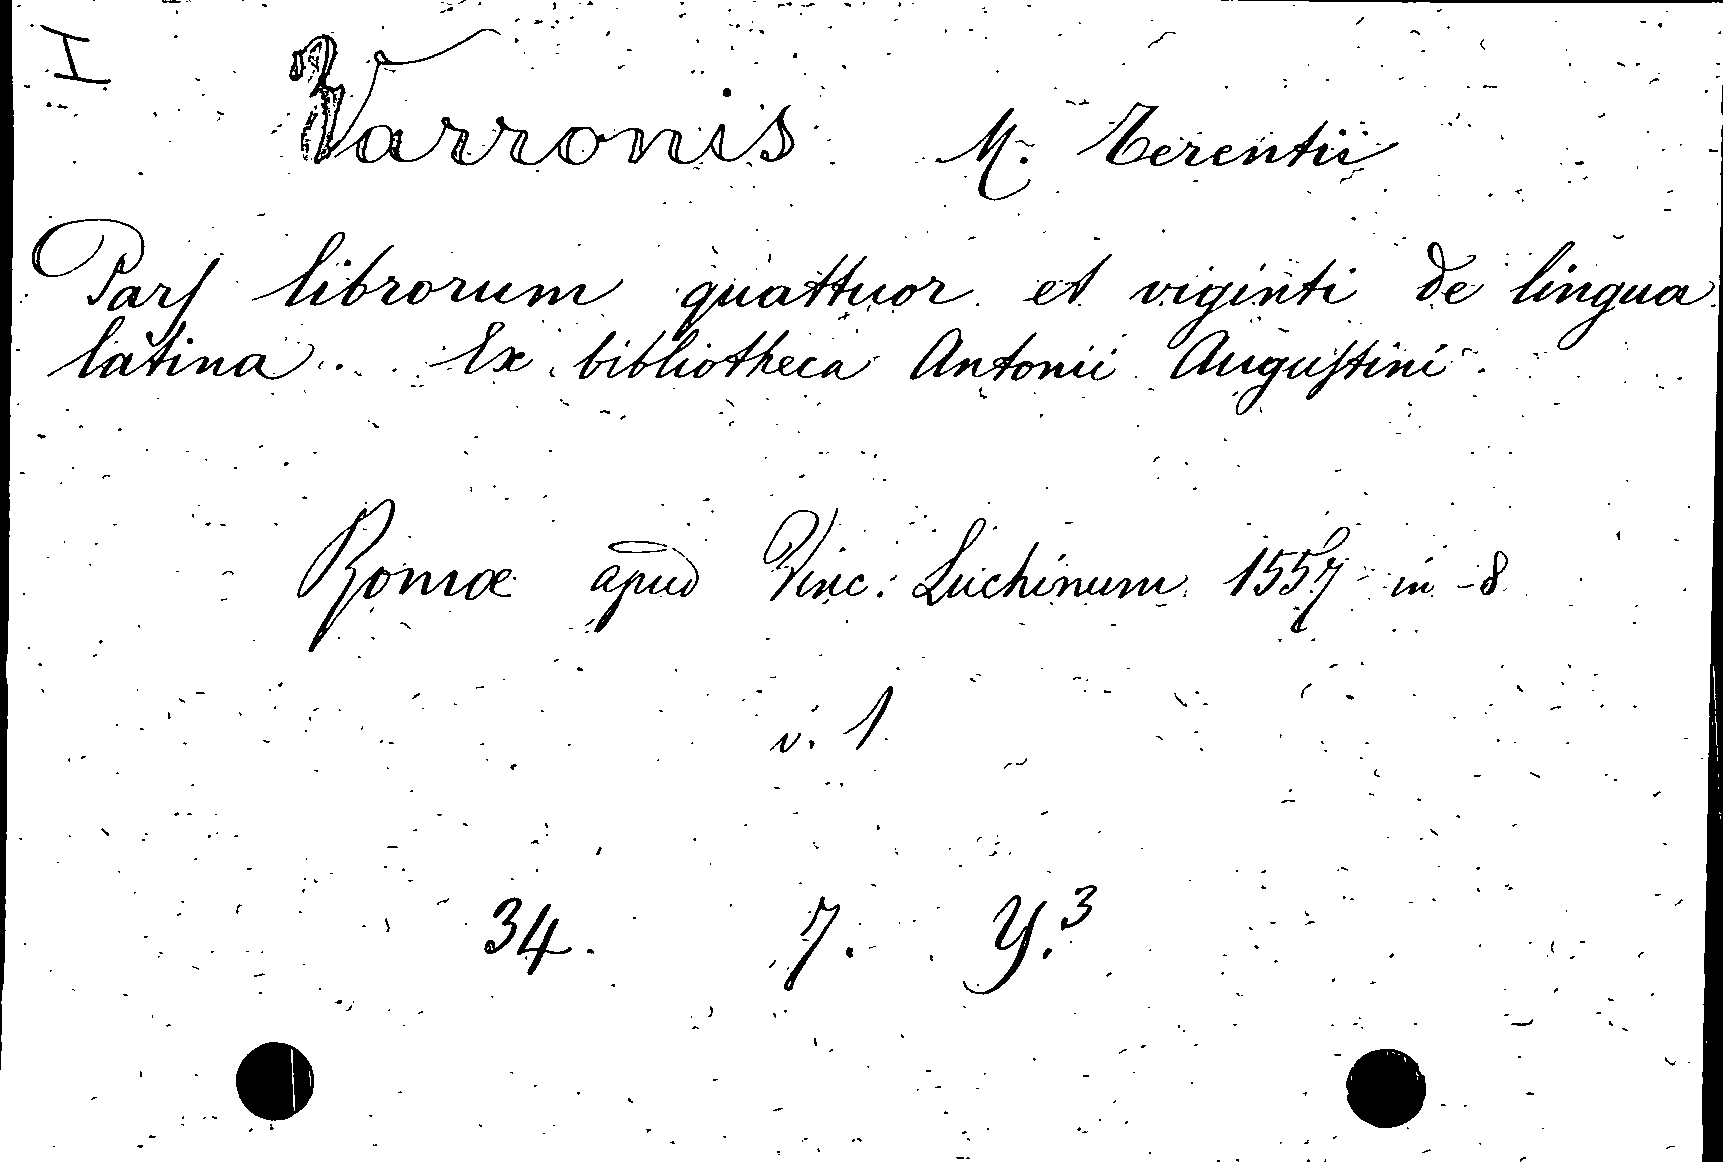 I
Varronis M. Terentii
Pars librorum quattuor et viginti de lingua
latina. Ex bibliotheca Antonii Augustini.
Romæ apud Vinc: Luchinum 1557 in-8
v. 1
34. 7. Y.³